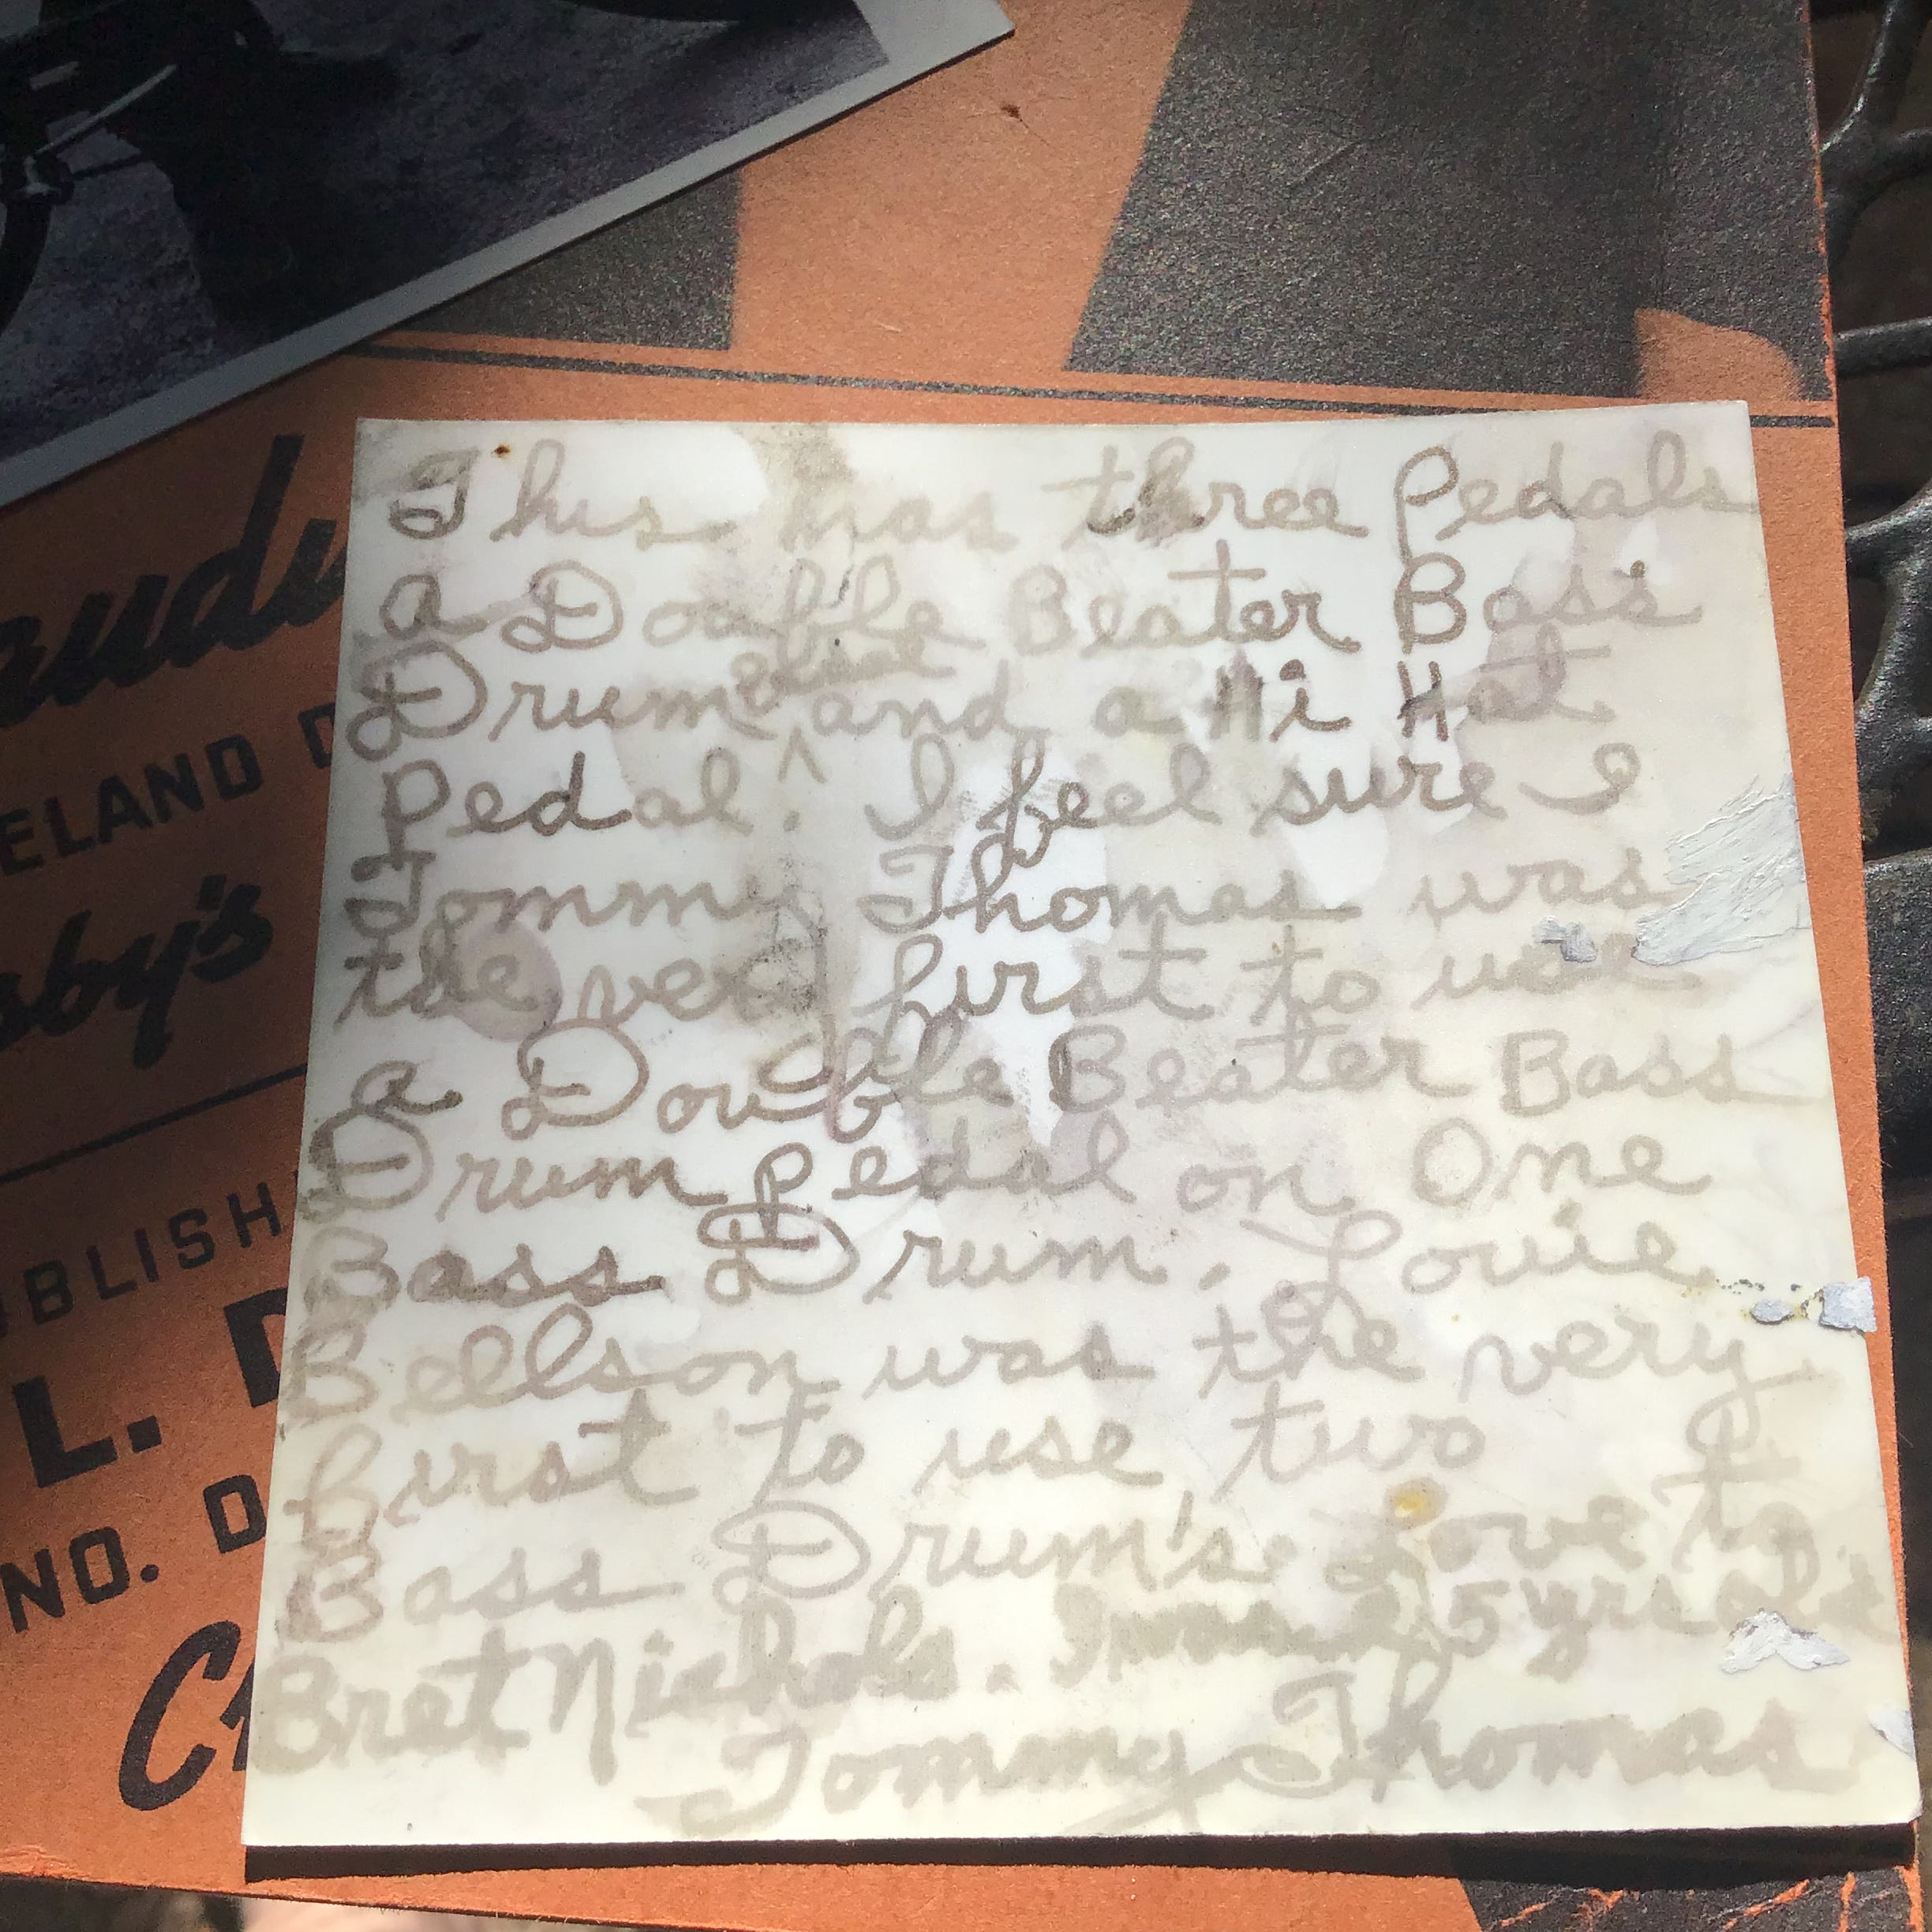 audi
ELAND D
oby's
BLISH
L. D
NO. D
C
This has three Pedals
a Double Beater Bass
Drum and a Hi Hat
Pedal. I feel sure I
Tommy Thomas was
the very first to use
a Double Beater Bass
Drum pedal on One
Bass Drum. Louie
Bellson was the very
first to use two
Bass Drum's. Love to
Bret Nichols. I 5 yrs old
Tommy Thomas